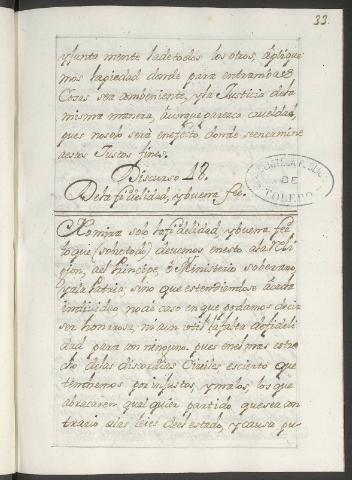 33.
y junta mente la de todos los otros, aplique
mos la piedad donde para entrambas
Cosas sea combeniente, y la Justicia dela
misma manera, aunque paresca crueldad,
pues no solo será en efecto, donde se encamine
a estos Justos fines.
Discurso 12.
De la fidelidad, y buena fee.
BIBLIOTECA PUBLICA
DE
TOLEDO
No mira solo la fidelidad, y buena fee
lo que (sobre todo) devemos en esto a la Reli
gion, al Principe, ó Ministerio soberano,
y a la Patria, sino que estendiendose á cada
individuo, no ai caso en que podamos decir
ser honrosa, ni aun util la falta de fideli
dad para con ninguno. pues en el mas estre
cho de las discordias Civiles, es cierto que
tendremos por injustos, y malos, los que
abracaren qual quier partido que sea con
trario a las leies de el estado, y causa pu-